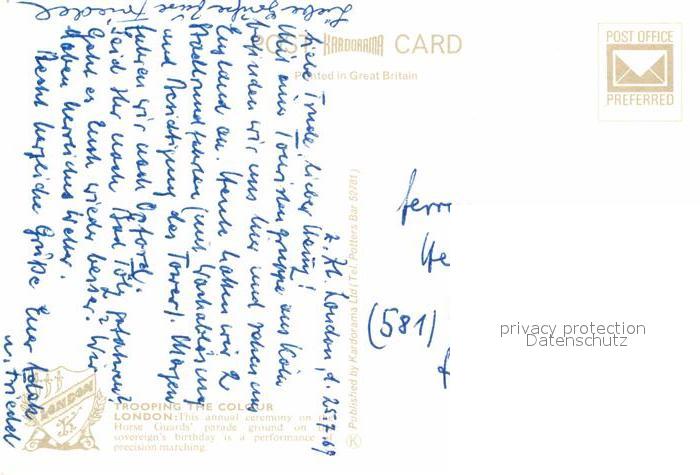 POST KARDORAMA CARD
Printed in Great Britain
POST OFFICE
PREFERRED
z. Zt. London, d. 25.7.69
Liebe Trude, lieber Henry!
Mit einer Touristengruppe aus Köln
befinden wir uns hier und sehen uns
England an. Heute haben wir 2
Stadtrundfahrten (mit Wachablösung
und Besichtigung des Towers). Morgen
fahren wir nach Oxford.
Seid Ihr nach Bad Tölz gefahren?
Geht es Euch wieder besser? Wir
haben herrliches Wetter.
Recht herzliche Grüße Euer
u. Friedel
Liebe Grüße Eure Friedel
Herrn
He
(581)
privacy protection
Datenschutz
Published by Kardorama Ltd (Tel. Potters Bar 52781)
K
LONDON
TROOPING THE COLOUR
LONDON: This annual ceremony on
Horse Guards' parade ground on
sovereign's birthday is a performance of
precision marching.